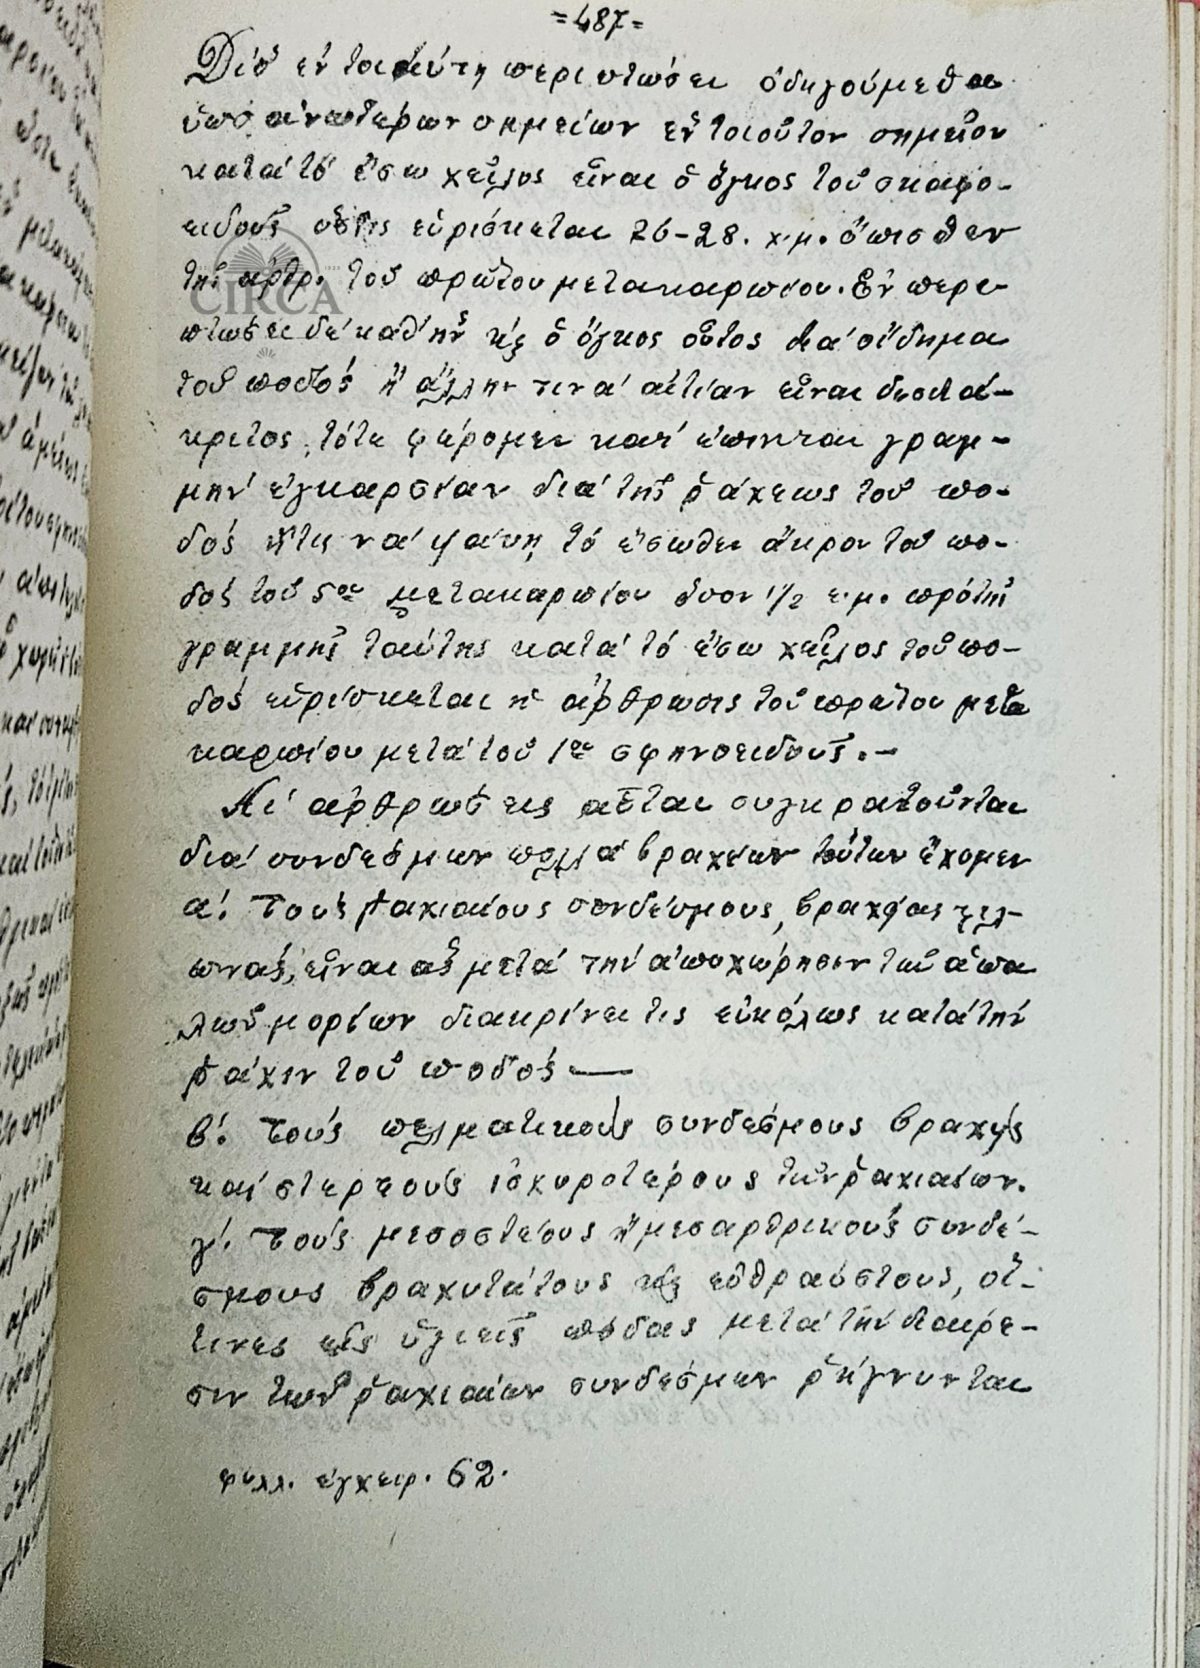 =487=
Διό ἐν τοιαύτῃ περιπτώσει ὁδηγούμεθα
ὑπό ἀνωτέρων σημείων ἐν τοιοῦτον σημεῖον
κατά τό ἔσω χεῖλος εἶναι ὁ ὄγκος τοῦ σκαφο-
ειδοῦς ὅστις εὑρίσκεται 26-28. χ.μ. ὄπισθεν
τῆς ἀρθρ. τοῦ πρώτου μετακαρπίου. Ἐν περι-
πτώσει δέ καθ' ἥν κ ὁ ὄγκος οὗτος διά οἴδημα
τοῦ ποδός ἤ ἄλλην τινά αἰτίαν εἶναι δυσδιά-
κριτος, τότε φέρομεν γραμ-
μήν ἐγκαρσίαν διά τῆς ῥάχεως τοῦ πο-
δός ἥτις νά ψαύῃ τό ἔσωθεν ἄκρον τοῦ πο-
δός τοῦ 5ου μετακαρπίου ὅσον 1 1/2 ε.μ. πρό τῆς
γραμμῆς ταύτης κατά τό ἔσω χεῖλος τοῦ πο-
δός εὑρίσκεται ἡ ἄρθρωσις τοῦ πρώτου μετα
καρπίου μετά τοῦ 1ου σφηνοειδοῦς.-
Αἱ ἀρθρώσεις αὗται συγκρατοῦνται
διά συνδέσμων πολλά βραχέων τούτων ἔχομεν
α'. τούς ῥαχιαίους συνδέσμους, βραχεῖς
εἶναι ἅς μετά τήν ἀποχώρησιν τῶν ἁπα
λῶν μορίων διακρίνει τις εὐκόλως κατά τήν
ῥάχιν τοῦ ποδός —
β'. τούς πελματικούς συνδέσμους βραχεῖς
καί στερεούς ἰσχυροτέρους τῶν ῥαχιαίων.
γ'. τούς μεσοστέους ἤ μεσαρθρικούς συνδέ-
σμους βραχυτάτους κ εὐθραύστους, οἵ-
τινες εἰς ὑγιεῖς πόδας μετά τήν διαίρε-
σιν τῶν ῥαχιαίων συνδέσμων ῥήγνυνται
φυλλ. ἐγχειρ. 62.